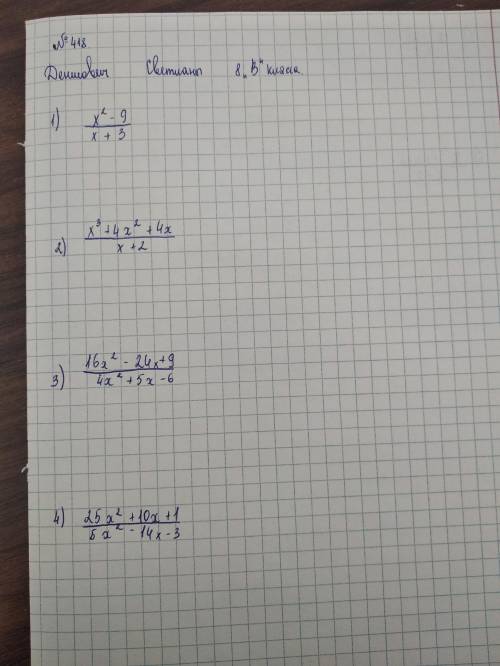 № 418
Денисович Светланы 8 „В" класса
1) x² - 9 / x + 3
2) x³ + 4x² + 4x / x + 2
3) 16x² - 24x + 9 / 4x² + 5x - 6
4) 25x² + 10x + 1 / 5x² - 14x - 3